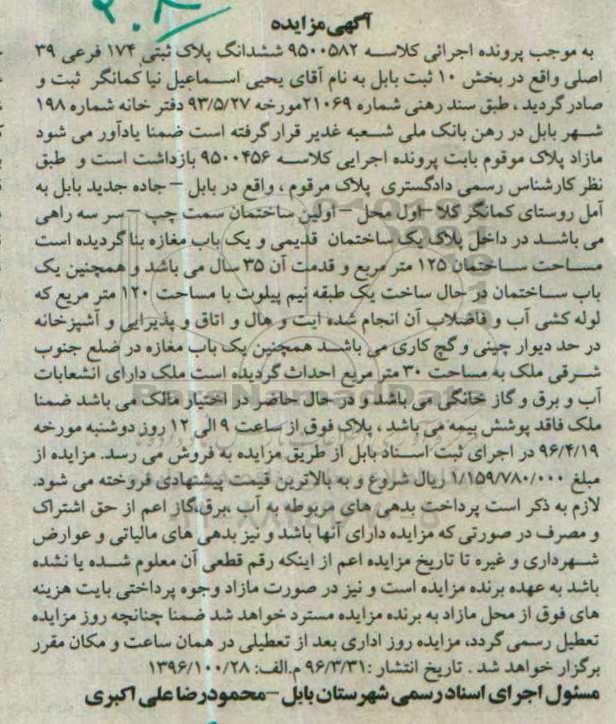 آگهی مزایده
به موجب پرونده اجرائی کلاسه ۹۵۰۰۵۸۲ ششدانگ پلاک ثبتی ۱۷۴ فرعی ۳۹
اصلی واقع در بخش ۱۰ ثبت بابل به نام آقای یحیی اسماعیل نیا کمانگر ثبت و
صادر گردید ، طبق سند رهنی شماره ۲۱۰۶۹مورخه ۹۳/۵/۲۷ دفتر خانه شماره ۱۹۸
شهر بابل در رهن بانک ملی شعبه غدیر قرار گرفته است ضمنا یادآور می شود
مازاد پلاک موقوم بابت پرونده اجرایی کلاسه ۹۵۰۰۴۵۶ بازداشت است و طبق
نظر کارشناس رسمی دادگستری پلاک مرقوم ، واقع در بابل – جاده جدید بابل به
آمل روستای کمانگر کلا –اول محل – اولین ساختمان سمت چپ – سر سه راهی
می باشد در داخل پلاک یک ساختمان قدیمی و یک باب مغازه بنا گردیده است
مساحت ساختمان ۱۲۵ متر مربع و قدمت آن ۳۵ سال می باشد و همچنین یک
باب ساختمان در حال ساخت یک طبقه نیم پیلوت با مساحت ۱۲۰ متر مربع که
لوله کشی آب و فاضلاب آن انجام شده ایت و هال و اتاق و پذیرایی و آشپزخانه
در حد دیوار چینی و گچ کاری می باشد همچنین یک باب مغازه در ضلع جنوب
شرقی ملک به مساحت ۳۰ متر مربع احداث گردیده است ملک دارای انشعابات
آب و برق و گاز خانگی می باشد و در حال حاضر در اختیار مالک می باشد ضمنا
ملک فاقد پوشش بیمه می باشد ، پلاک فوق از ساعت ۹ الی ۱۲ روز دوشنبه مورخه
۹۶/۴/۱۹ در اجرای ثبت اسناد بابل از طریق مزایده به فروش می رسد. مزایده از
مبلغ ۱/۱۵۹/۷۸۰/۰۰۰ ریال شروع و به بالاترین قیمت پیشنهادی فروخته می شود.
لازم به ذکر است پرداخت بدهی های مربوطه به آب ،برق،گاز اعم از حق اشتراک
و مصرف در صورتی که مزایده دارای آنها باشد و نیز بدهی های مالیاتی و عوارض
شهرداری و غیره تا تاریخ مزایده اعم از اینکه رقم قطعی آن معلوم شده یا نشده
باشد به عهده برنده مزایده است و نیز در صورت مازاد وجوه پرداختی بایت هزینه
های فوق از محل مازاد به برنده مزایده مسترد خواهد شد ضمنا چنانچه روز مزایده
تعطیل رسمی گردد، مزایده روز اداری بعد از تعطیلی در همان ساعت و مکان مقرر
برگزار خواهد شد . تاریخ انتشار :۹۶/۳/۳۱ م.الف: ۱۳۹۶/۱۰۰/۲۸
مسئول اجرای اسناد رسمی شهرستان بابل –محمودرضا علی اکبری